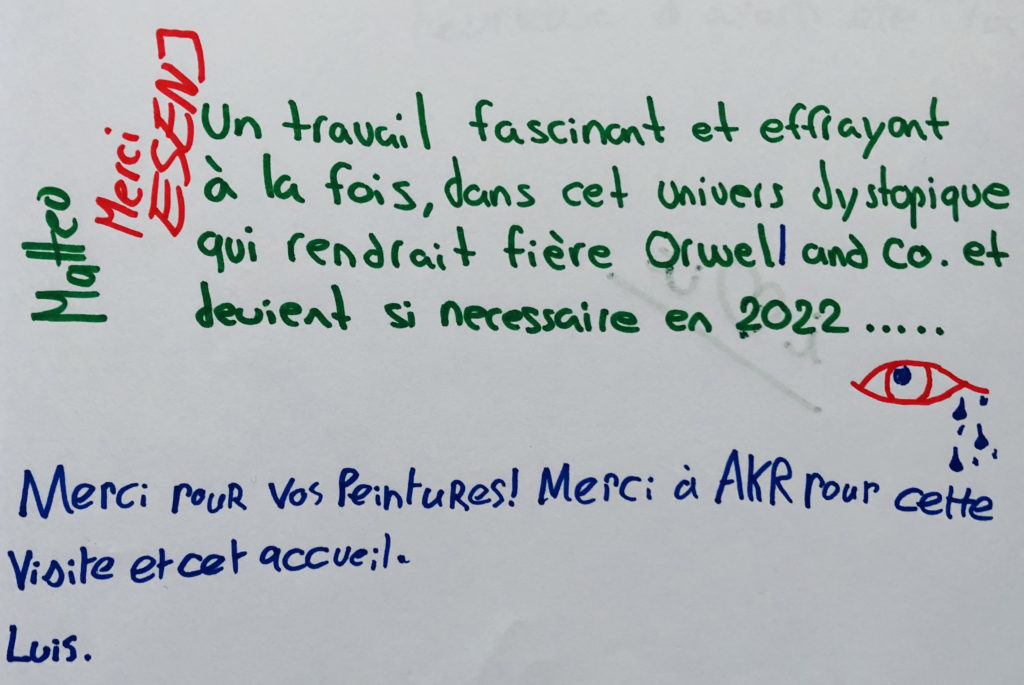 Matteo
Merci
ESEN
Un travail fascinant et effrayant
à la fois, dans cet univers dystopique
qui rendrait fière Orwell and co. et
devient si necessaire en 2022 .....
Merci pour vos Peintures! Merci à AKR pour cette
Visite et cet accueil.
Luis.